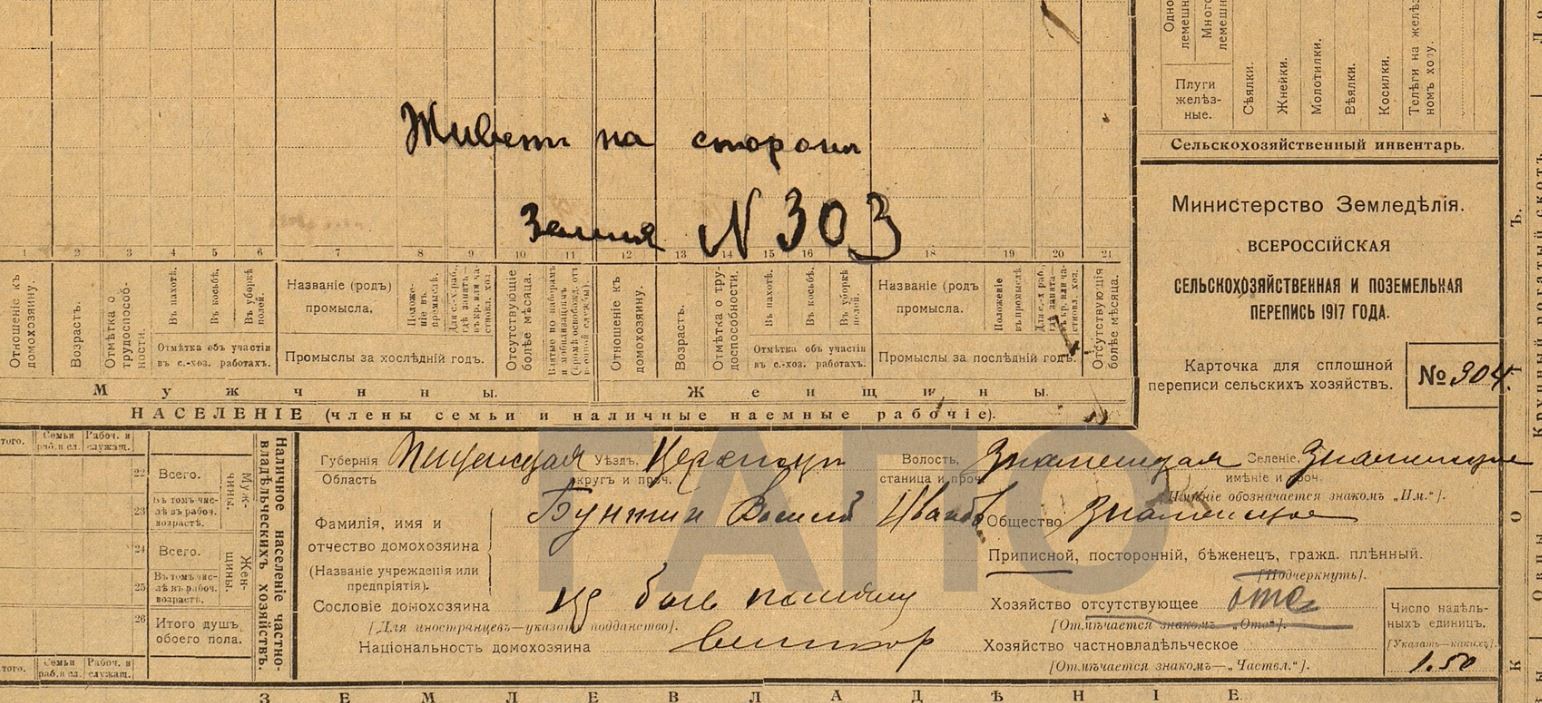 Живетъ на сторонѣ
Земля N 303
1 2 3 4 5 6 7 8 9 10 11 12 13 14 15 16 17 18 19 20 21
Отношеніе къ домохозяину.
Возрастъ.
Отмѣтка о трудоспособности.
Въ пахотѣ.
Въ косьбѣ.
Въ уборкѣ полей.
Отмѣтка объ участіи въ с.-хоз. работахъ.
Названіе (родъ) промысла.
Положеніе въ промыслѣ.
Промыслы за послѣдній годъ.
Отсутствующіе болѣе мѣсяца.
Отношеніе къ домохозяину.
Возрастъ.
Отмѣтка о трудоспособности.
Въ пахотѣ.
Въ косьбѣ.
Въ уборкѣ полей.
Отмѣтка объ участіи въ с.-хоз. работахъ.
Названіе (родъ) промысла.
Положеніе въ промыслѣ.
Промыслы за послѣдній годъ.
Отсутствующіе болѣе мѣсяца.
Мужчины.
Женщины.
НАСЕЛЕНІЕ (члены семьи и наличные наемные рабочіе).
Плуги желѣзные.
Сѣялки.
Жнейки.
Молотилки.
Вѣялки.
Косилки.
Телѣги на желѣзномъ ходу.
Сельскохозяйственный инвентарь.
Министерство Земледѣлія.
ВСЕРОССІЙСКАЯ
СЕЛЬСКОХОЗЯЙСТВЕННАЯ И ПОЗЕМЕЛЬНАЯ
ПЕРЕПИСЬ 1917 ГОДА.
Карточка для сплошной
переписи сельскихъ хозяйствъ.
№ 304.
Семьи Рабоч. и служащ.
22 Всего.
23 Въ томъ числѣ въ рабоч. возрастѣ.
Мужчины.
24 Всего.
25 Въ томъ числѣ въ рабоч. возрастѣ.
Женщины.
26 Итого душъ обоего пола.
Наличное населеніе частновладѣльческихъ хозяйствъ.
Губернія Область Уѣздъ, округъ и проч. Волость, станица и проч. Знаменская Селеніе, имѣніе и проч. Знаменское
[Имѣніе обозначается знакомъ „Им."].
Фамилія, имя и отчество домохозяина
Бунтин Василій Иванов
(Названіе учрежденія или предпріятія).
Общество Знаменское
Приписной, посторонній, бѣженецъ, гражд. плѣнный.
[Подчеркнуть].
Сословіе домохозяина
[Для иностранцевъ—указать подданство].
Хозяйство отсутствующее отс
[Отмѣчается знакомъ „Отс"].
Національность домохозяина великор
Хозяйство частновладѣльческое
[Отмѣчается знакомъ—„Частвл."].
Число надѣльныхъ единицъ.
[Указать—какихъ].
1.50
ГАПО
ЗЕМЛЕВЛАДѢНІЕ
Крупный рогатый скотъ
Овцы